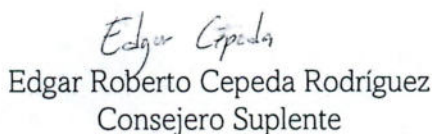 Edgar Cepeda
Edgar Roberto Cepeda Rodríguez
Consejero Suplente